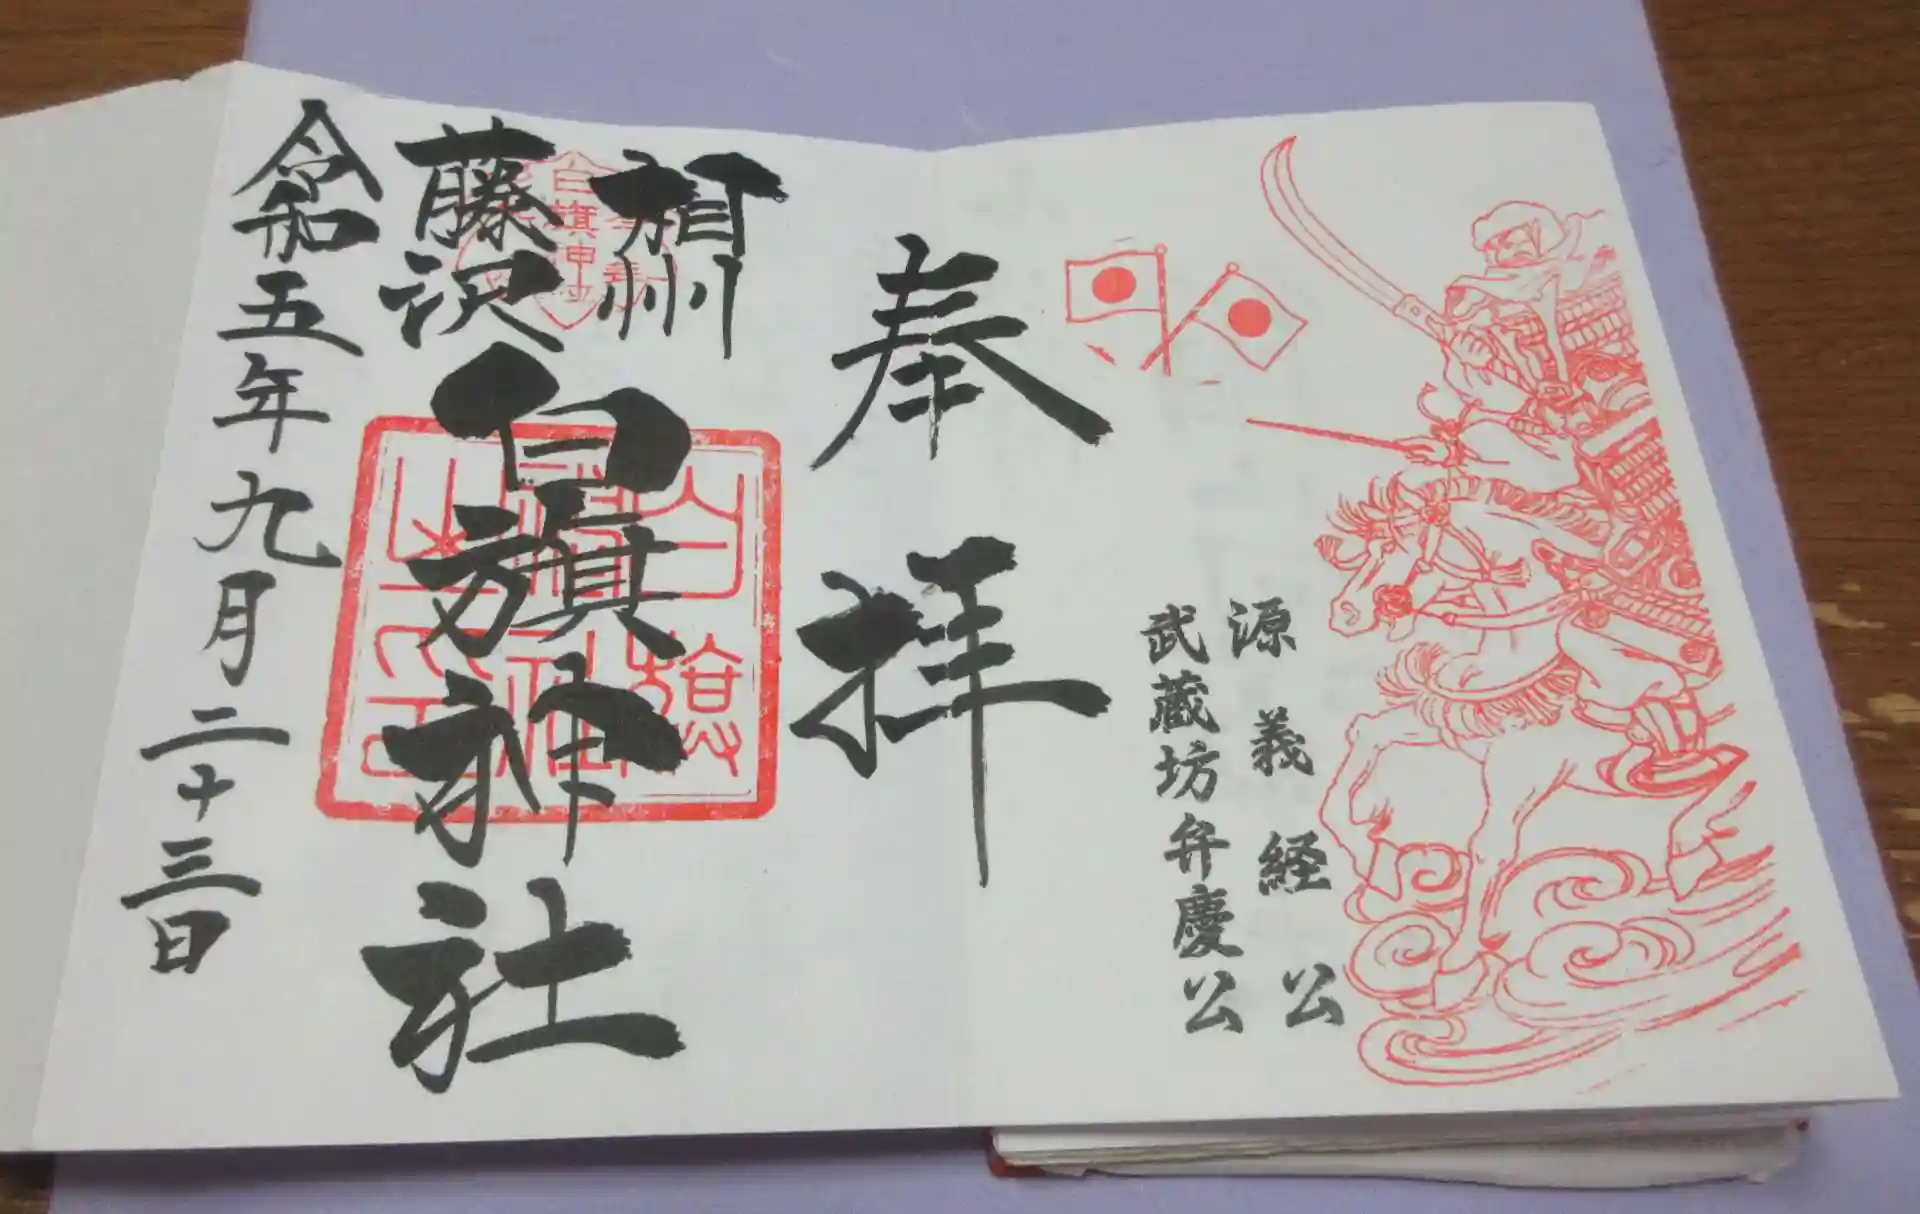 源義経公
武蔵坊弁慶公
奉拝
相州
藤沢
白旗神社
令和五年九月二十三日